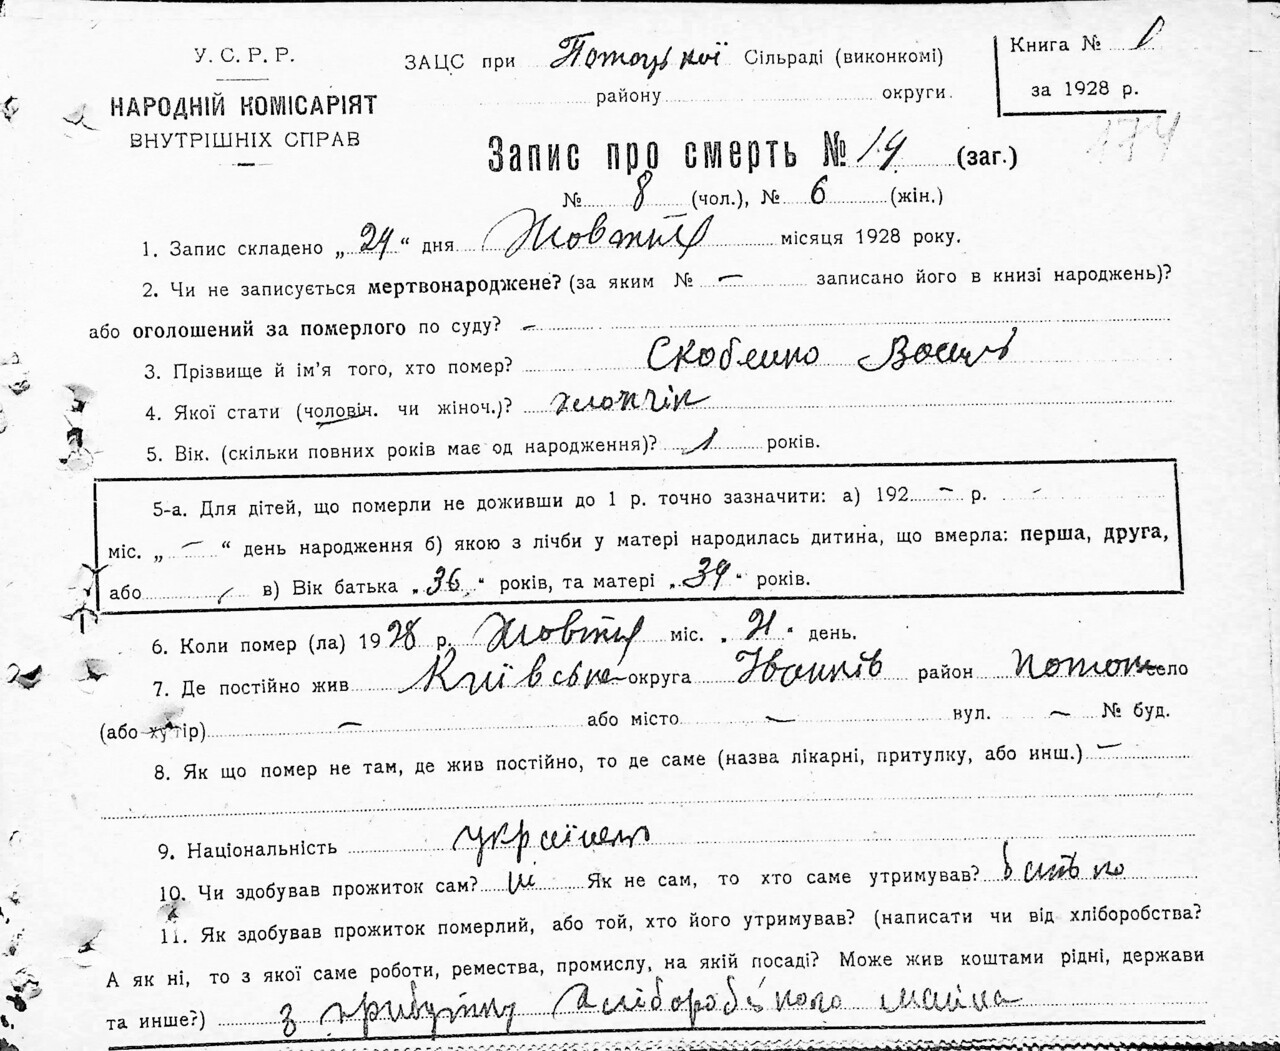 У. С. Р. Р.
НАРОДНІЙ КОМІСАРІЯТ
ВНУТРІШНІХ СПРАВ
ЗАЦС при Потоцької Сільраді (виконкомі)
району округи.
Книга № 1
за 1928 р.
174
Запис про смерть № 14 (заг.)
№ 8 (чол.), № 6 (жін.)
1. Запис складено „24“ дня Жовтня місяця 1928 року.
2. Чи не записується мертвонароджене? (за яким № — записано його в книзі народжень)?
або оголошений за померлого по суду? —
3. Прізвище й ім'я того, хто помер? Скобенко Василь
4. Якої стати (чоловін. чи жіноч.)? хлопчік
5. Вік. (скільки повних років має од народження)? 1 років.
5-а. Для дітей, що померли не доживши до 1 р. точно зазначити: а) 192 — р. —
міс. „ — “ день народження б) якою з лічби у матері народилась дитина, що вмерла: перша, друга,
або в) Вік батька „36“ років, та матері „34“ років.
6. Коли помер (ла) 1928 р. Жовтня міс. „21“ день.
7. Де постійно жив Київська округа Іванків район Поток село
(або хутір) — або місто — вул. — № буд.
8. Як що помер не там, де жив постійно, то де саме (назва лікарні, притулку, або инш.) —
9. Національність українець
10. Чи здобував прожиток сам? ні Як не сам, то хто саме утримував? батько
11. Як здобував прожиток померлий, або той, хто його утримував? (написати чи від хліборобства?
А як ні, то з якої саме роботи, ремества, промислу, на якій посаді? Може жив коштами рідні, держави
та инше?) з прибутку хліборобського майна